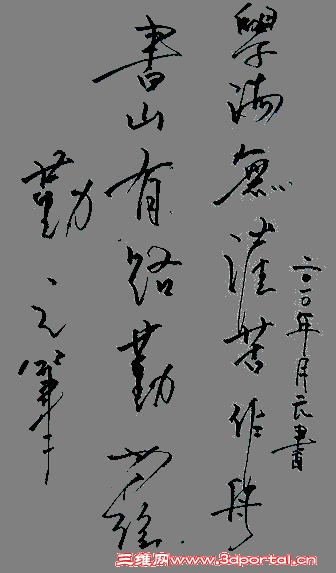 二〇一〇年月元書
學海無涯苦作舟
書山有路勤為徑
勤之筆
三维网www.3dportal.cn